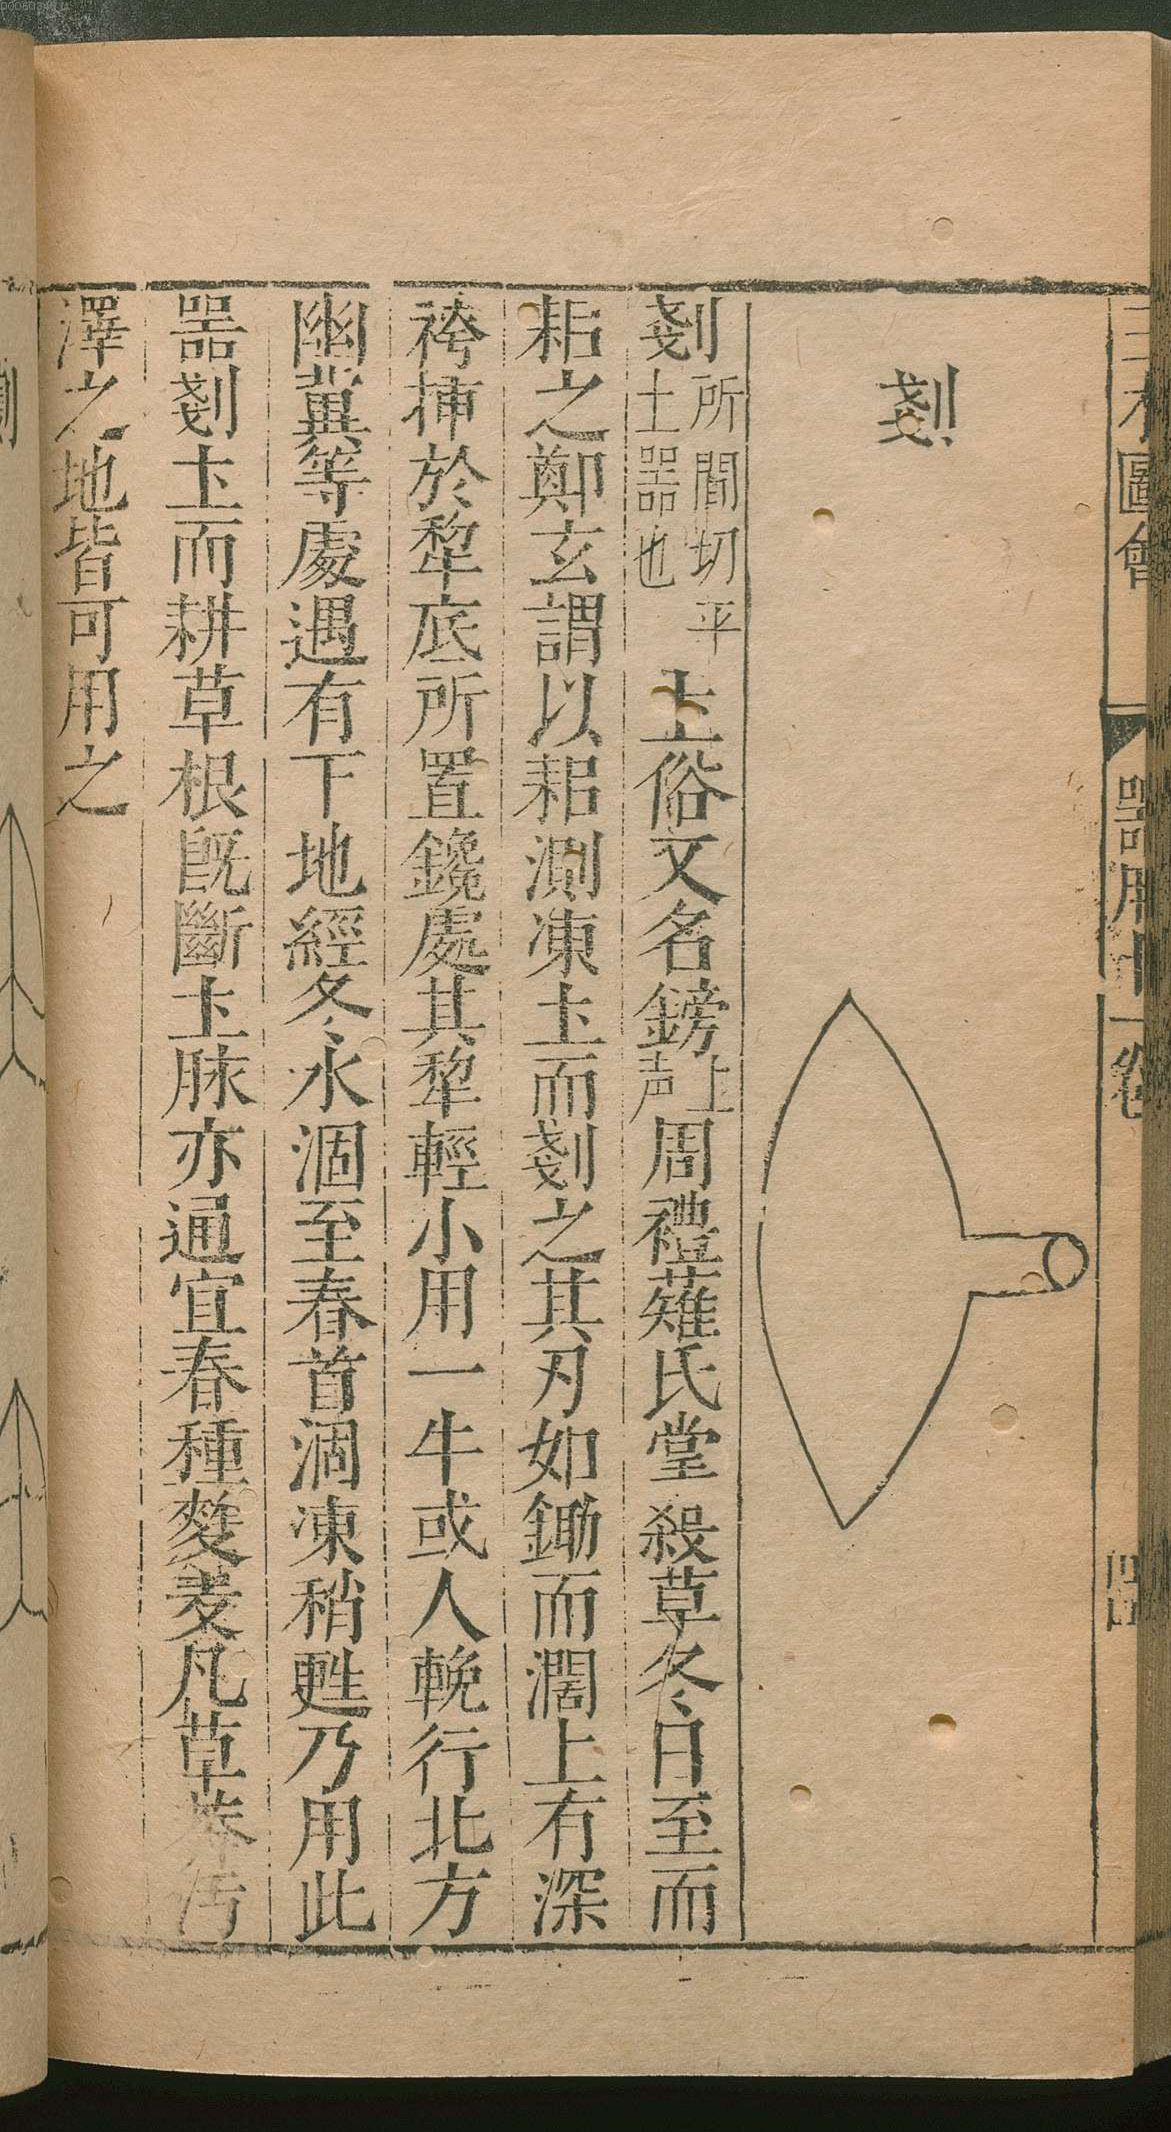 三才圖會
器用十一卷
四
剗
剗所間切平土器也圡俗又名鎊上声周禮薙氏堂殺草冬日至而
耜之鄭玄謂以耜測凍圡而剗之其刃如鋤而濶上有深
袴揷於犂底所置鑱處其犂輕小用一牛或人輓行北方
幽冀等處遇有下地經冬水涸至春首涸凍稍甦乃用此
器剗圡而耕草根旣斷圡脉亦通宜春種麰麦凡草莽汚
澤之地皆可用之